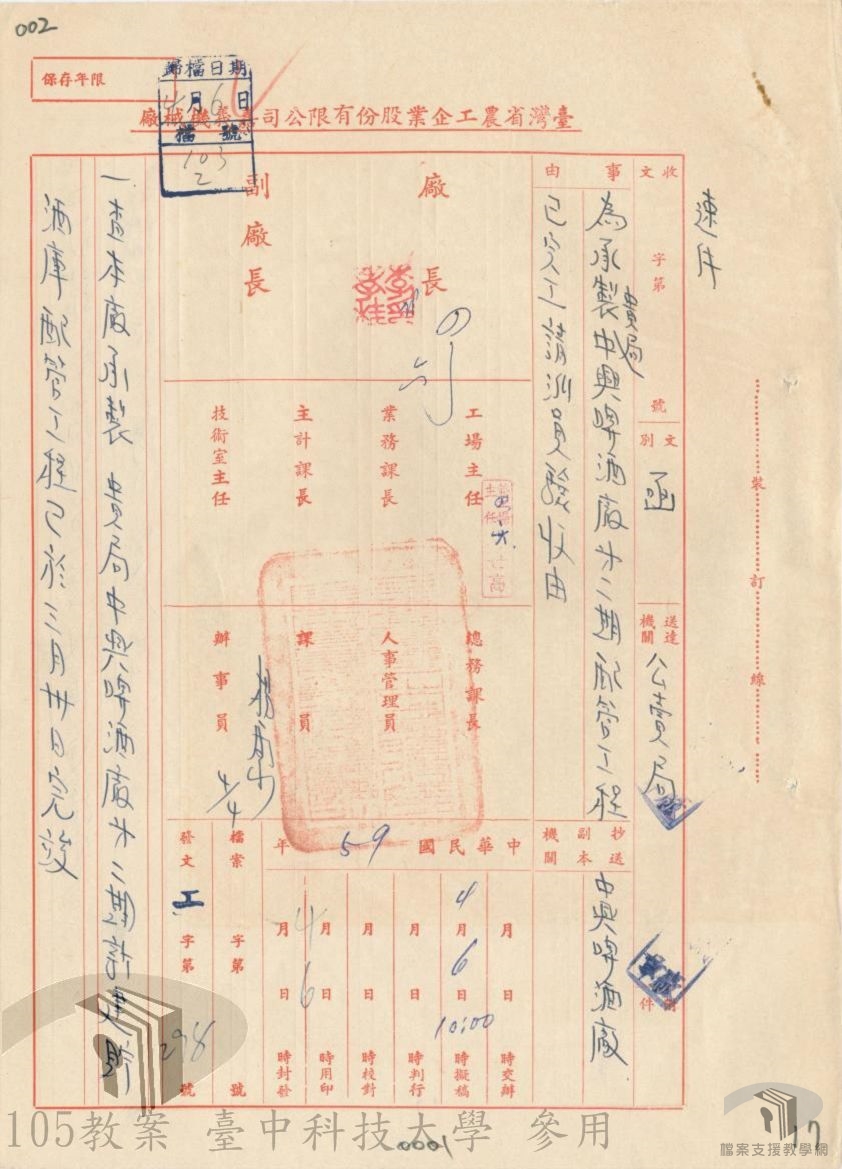 002
保存年限
歸檔日期
4月6日
檔號
103
2
臺灣省農工企業股份有限公司嘉義機械廠
速件
裝訂線
收文 字第 號
文別 函
送達機關 公賣局
抄送副本機關 中興啤酒廠
附件
事由
為承製貴局中興啤酒廠廿二期配管工程
已完工請派員驗收由
廠長
副廠長
工場主任
業務課長
主計課長
技術室主任
總務課長
人事管理員
課員
辦事員
4/4
中華民國59年
月 日 時交辦
4月6日10:00時擬稿
月 日 時判行
月 日 時校對
4月6日 時用印
月 日 時封發
檔案 字第 號
發文 工 字第 298 號
一查本廠承製 貴局中興啤酒廠廿二期新建貯
酒庫配管工程已於三月卅日完竣
0001
17
105教案 臺中科技大學 參用
檔案支援教學網